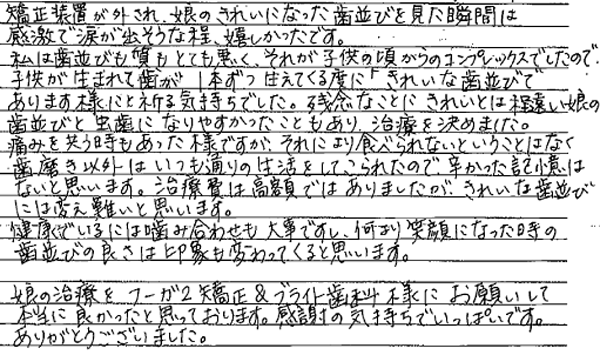 矯正装置が外され、娘のきれいになった歯並びを見た瞬間は
感激で涙が出そうな程、嬉しかったです。
私は歯並びも質もとても悪く、それが子供の頃からのコンプレックスでしたので、
子供が生まれて歯が1本ずつ生えてくる度に「きれいな歯並びで
あります様に」と祈る気持ちでした。残念なことにきれいとは程遠い娘の
歯並びと虫歯になりやすかったこともあり、治療を決めました。
痛みを伴う時もあった様ですが、それにより食べられないということはなく
歯磨き以外はいつも通りの生活をしてこられたので辛かった記憶は
ないと思います。治療費は高額ではありましたが、きれいな歯並び
には変え難いと思います。
健康でいるには噛み合わせも大事ですし、何より笑顔になった時の
歯並びの良さは印象も変わってくると思います。
娘の治療をフーガ2矯正&ブライト歯科様にお願いして
本当に良かったと思っております。感謝の気持ちでいっぱいです。
ありがとうございました。